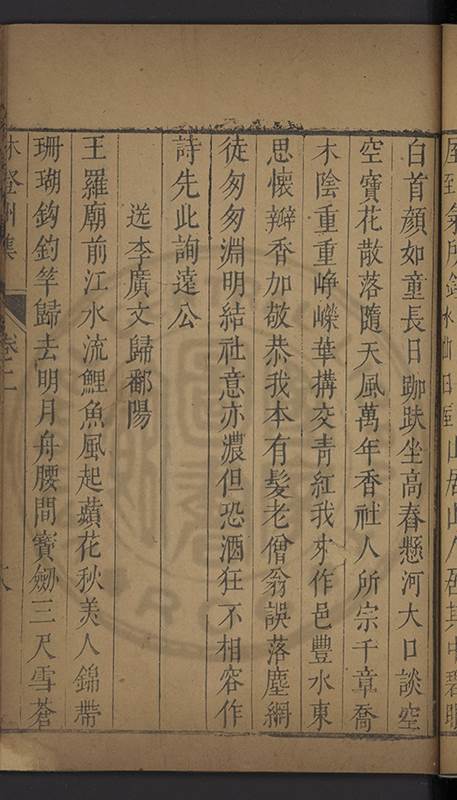 山居山人居其中碧眼
白首顏如童長日跏趺坐高舂懸河大口談空
空寶花散落隨天風萬年香社人所宗千章喬
木陰重重崢嶸華搆交青紅我來作邑豐水東
思懷瓣香加敬恭我本有髮老僧翁誤落塵網
徒匆匆淵明結社意亦濃但恐酒狂不相容作
詩先此詢遠公
送李廣文歸鄱陽
王羅廟前江水流鯉魚風起蘋花秋美人錦帶
珊瑚鈎釣竿歸去明月舟腰間寶劒三尺雪蒼
集 卷二